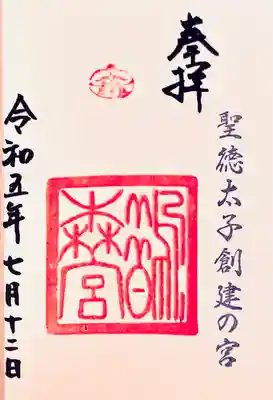 聖徳太子創建の宮
奉拝
森宮
令和五年七月十二日